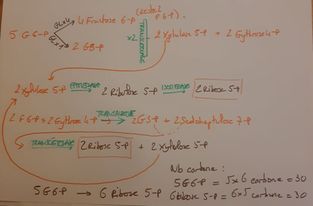 4 Fructose 6-P
5 G 6-P
2 GBP
x2
2 Xylulose 5-P + 2 Erythrose 4-P
2 Xylulose 5-P 2 Ribulose 5-P 2 Ribose 5-P
2 Erythrose 4-P 2 G3P + 2 Sedoheptulose 7-P
2 Ribose 5-P + 2 Xylulose 5-P
Nb carbone :
5 G 6-P = 5x6 carbone = 30
5 G 6-P → 6 Ribose 5-P 6 Ribose 5-P = 6x5 carbone = 30